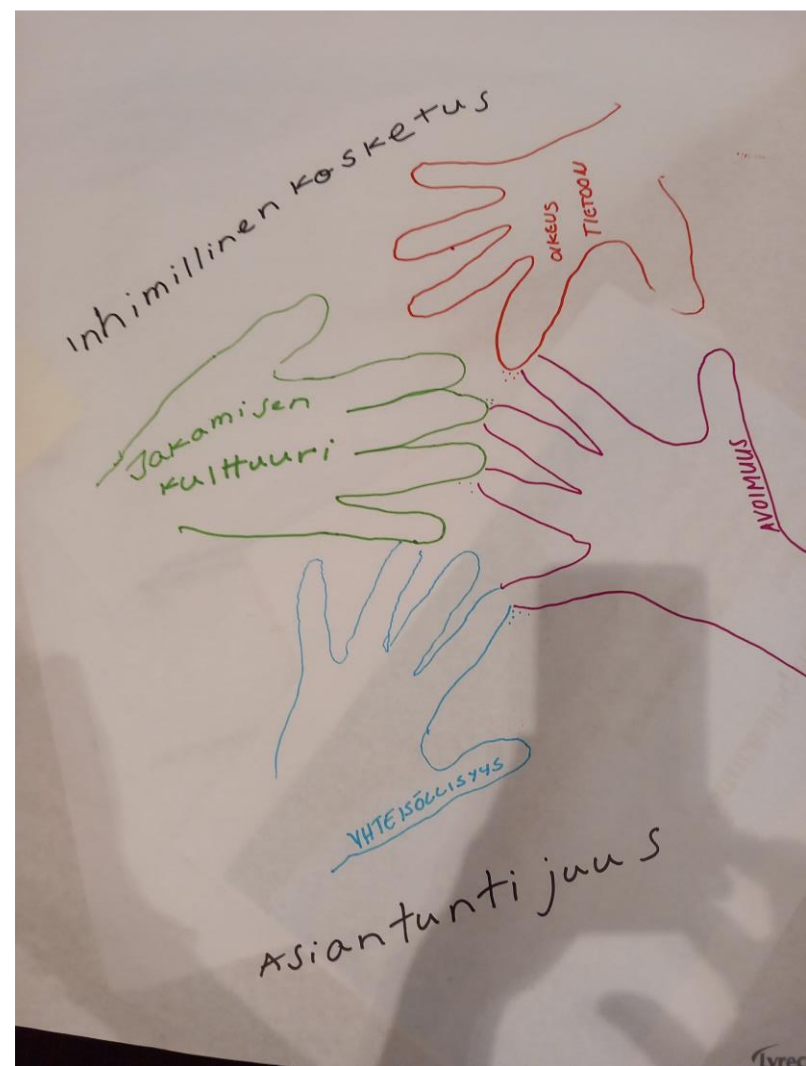 Inhimillinen kosketus
OIKEUS
TIETOON
Jakamisen
kulttuuri
AVOIMUUS
YHTEISÖLLISYYS
Asiantuntijuus